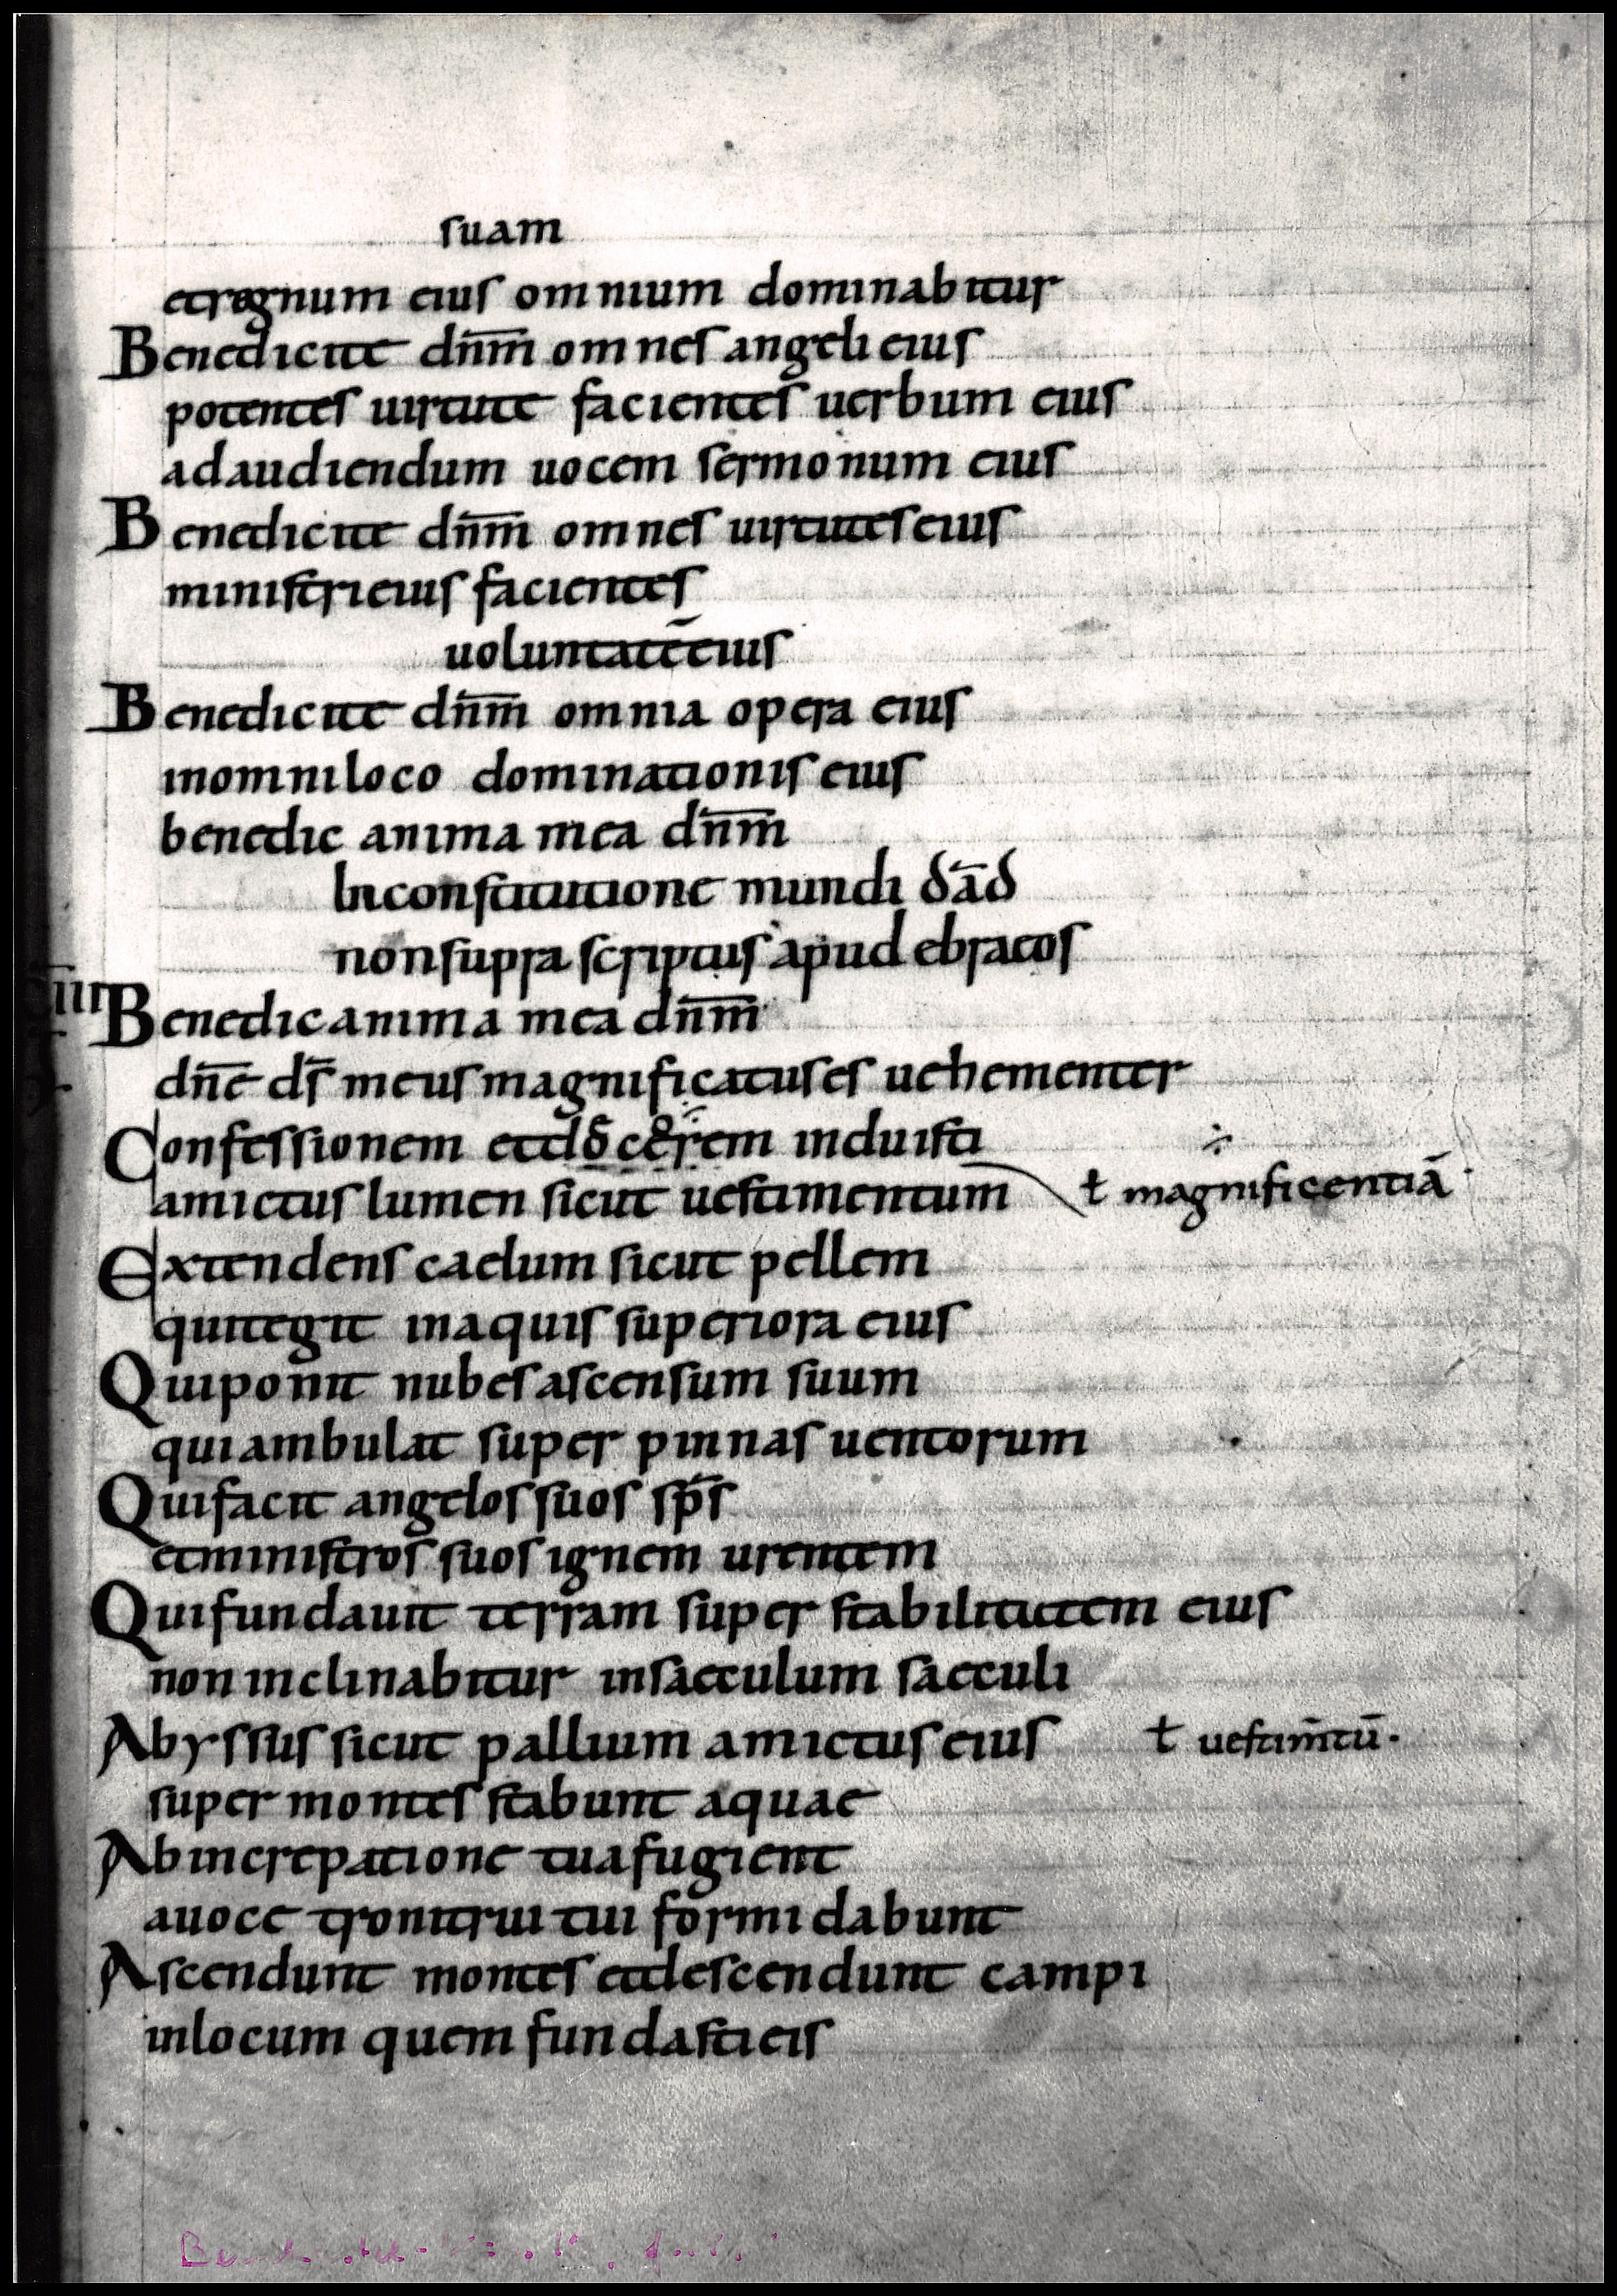 suam
et regnum eius omnium dominabitur
Benedicite dn̅m̅ omnes angeli eius
potentes uirtute facientes uerbum eius
ad audiendum uocem sermonum eius
Benedicite dn̅m̅ omnes uirtutes eius
ministri eius facientes
uoluntatē eius
Benedicite dn̅m̅ omnia opera eius
in omni loco dominationis eius
benedic anima mea dn̅m̅
In constitutione mundi dād
non supra scriptus apud ebraeos
Benedic anima mea dn̅m̅
dn̅e ds̅ meus magnificatus es uehementer
Confessionem et decorem induisti
amictus lumen sicut uestimentum ƚ magnificentiā
Extendens caelum sicut pellem
qui tegit in aquis superiora eius
Qui ponit nubes ascensum suum
qui ambulat super pinnas uentorum
Qui facit angelos suos sp̅s
et ministros suos ignem urentem
Qui fundauit terram super stabilitatem eius
non inclinabitur in saeculum saeculi
Abyssus sicut pallium amictus eius ƚ uestim̅tū·
super montes stabunt aquae
Ab increpatione tua fugient
a uoce tronitrui tui formidabunt
Ascendunt montes et descendunt campi
in locum quem fundasti eis